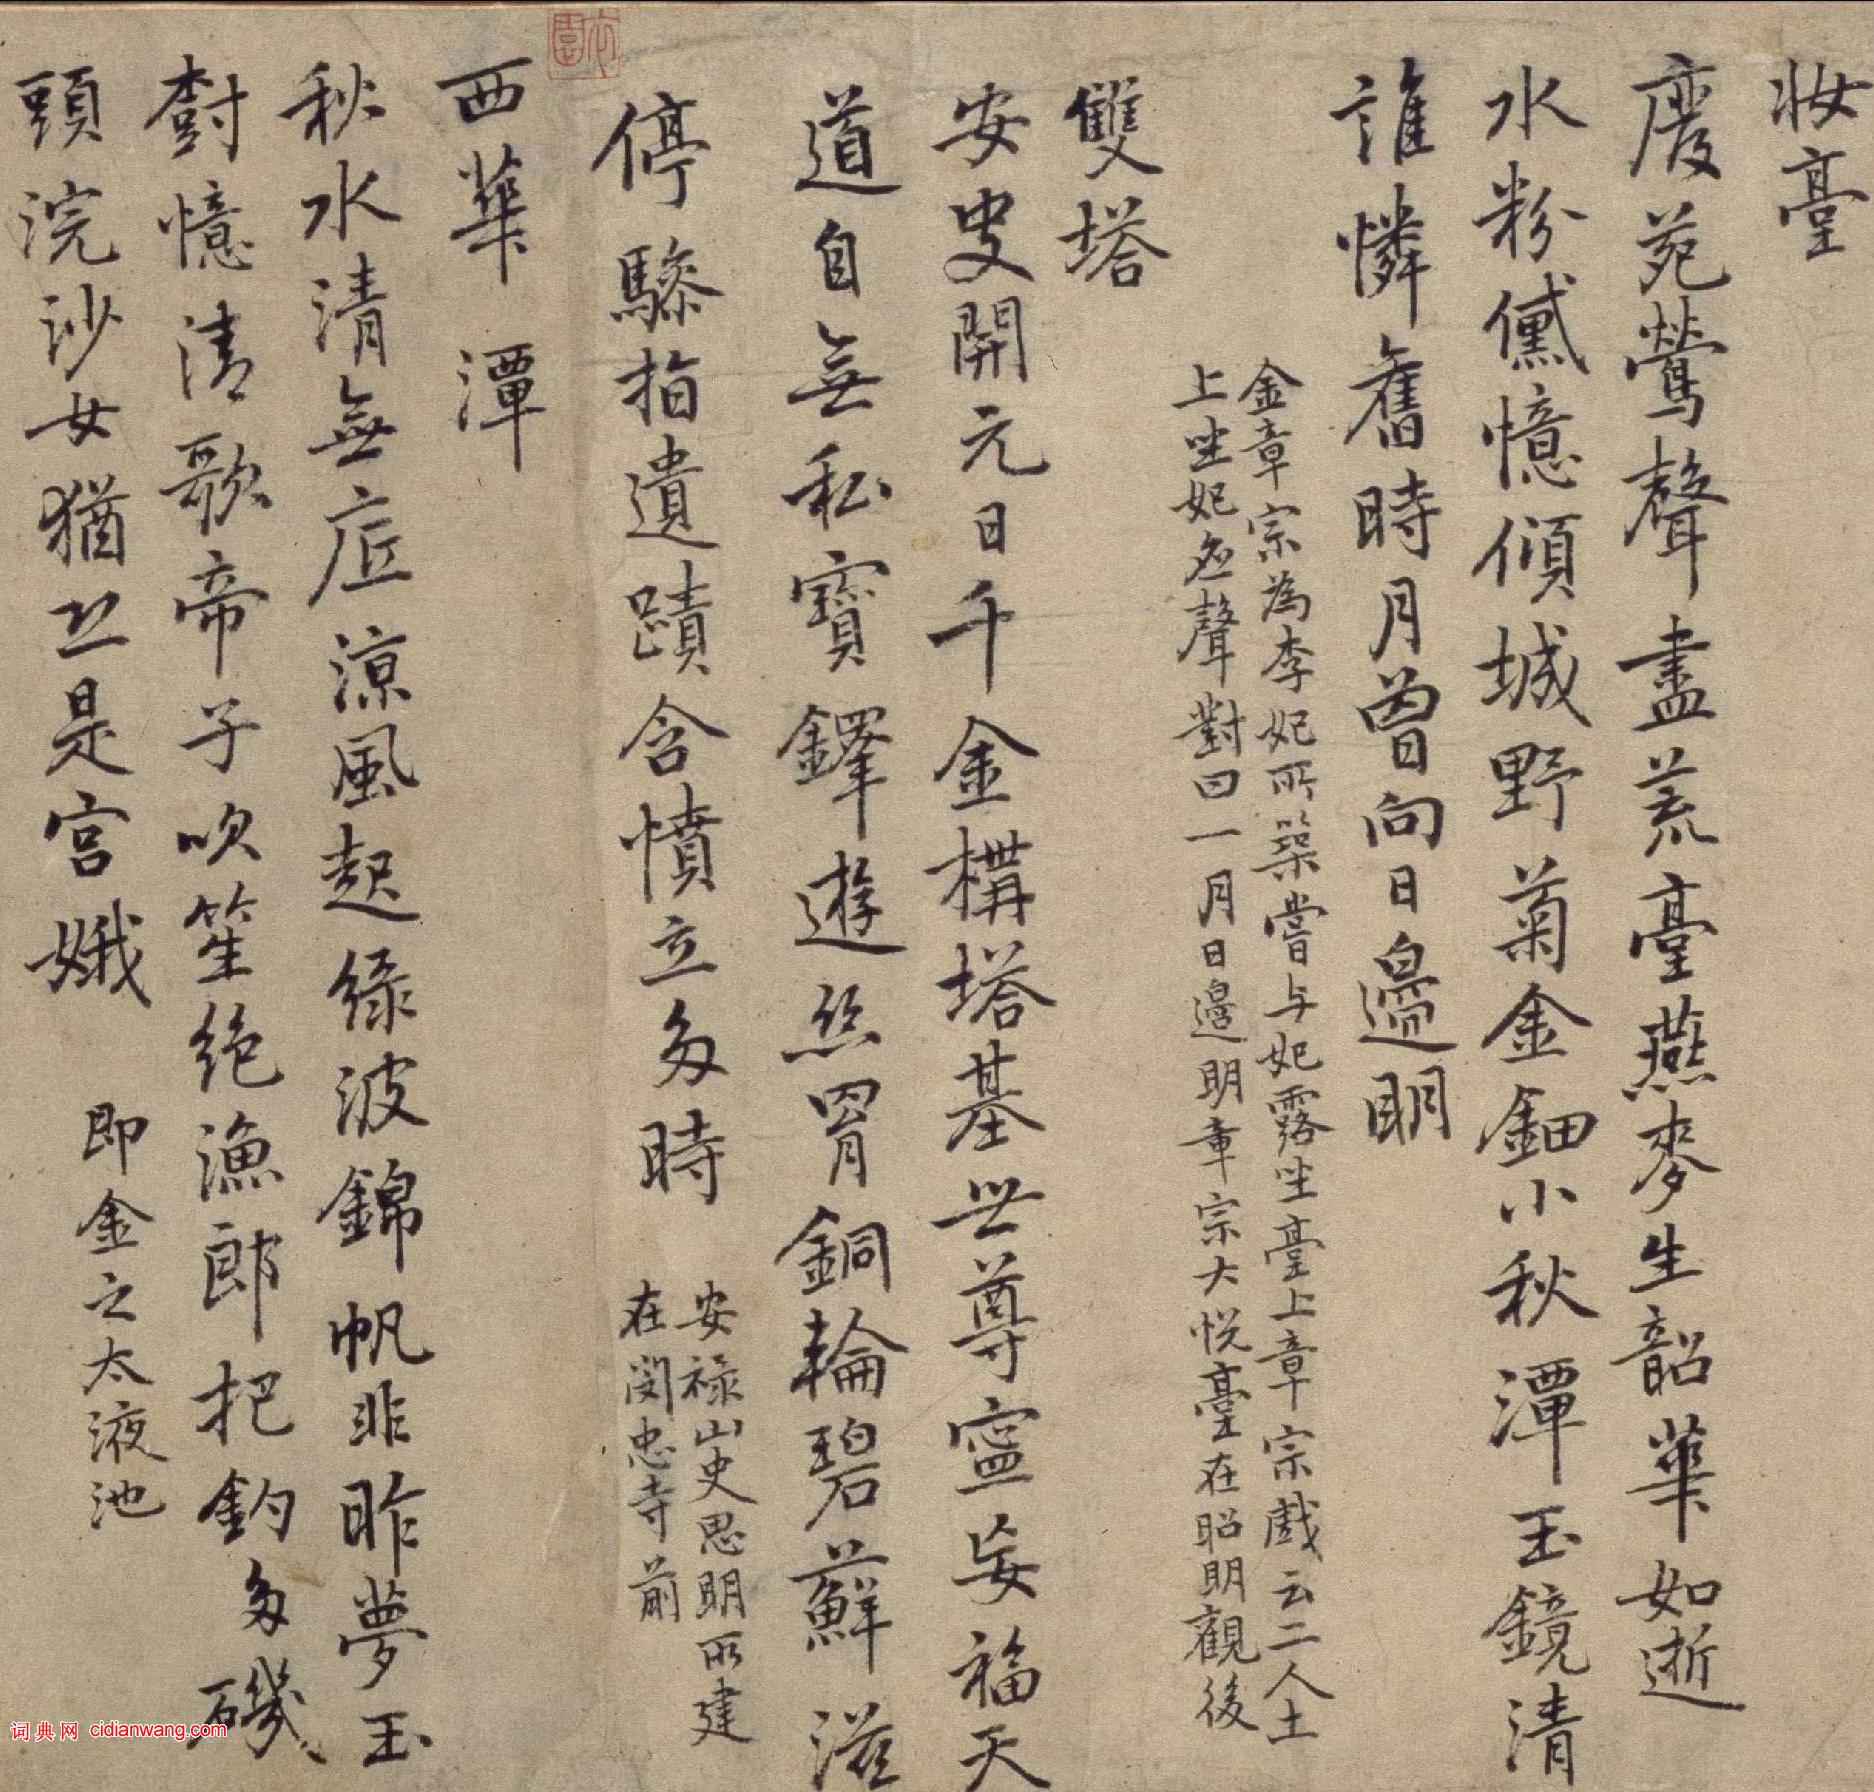 妝臺
廢苑鶯聲盡荒臺燕麥生韶華如逝
水粉黛憶傾城野菊金鈿小秋潭玉鏡清
誰憐舊時月曾向日邊明
金章宗為李妃所築嘗与妃露坐臺上章宗戲云二人土
上坐妃應聲對曰一月日邊明章宗大悅臺在昭明觀後
雙塔
安史開元日千金構塔基世尊寧妄福天
道自無私寶鐸遊絲罥銅輪碧蘚滋
停驂指遺蹟含憤立多時
安祿山史思明所建
在閔忠寺前
西華潭
秋水清無底涼風起綠波錦帆非昨夢玉
樹憶清歌帝子吹笙絕漁郎把釣多磯
頭浣沙女猶恐是宮娥
即金之太液池
词典网 cidianwang.com